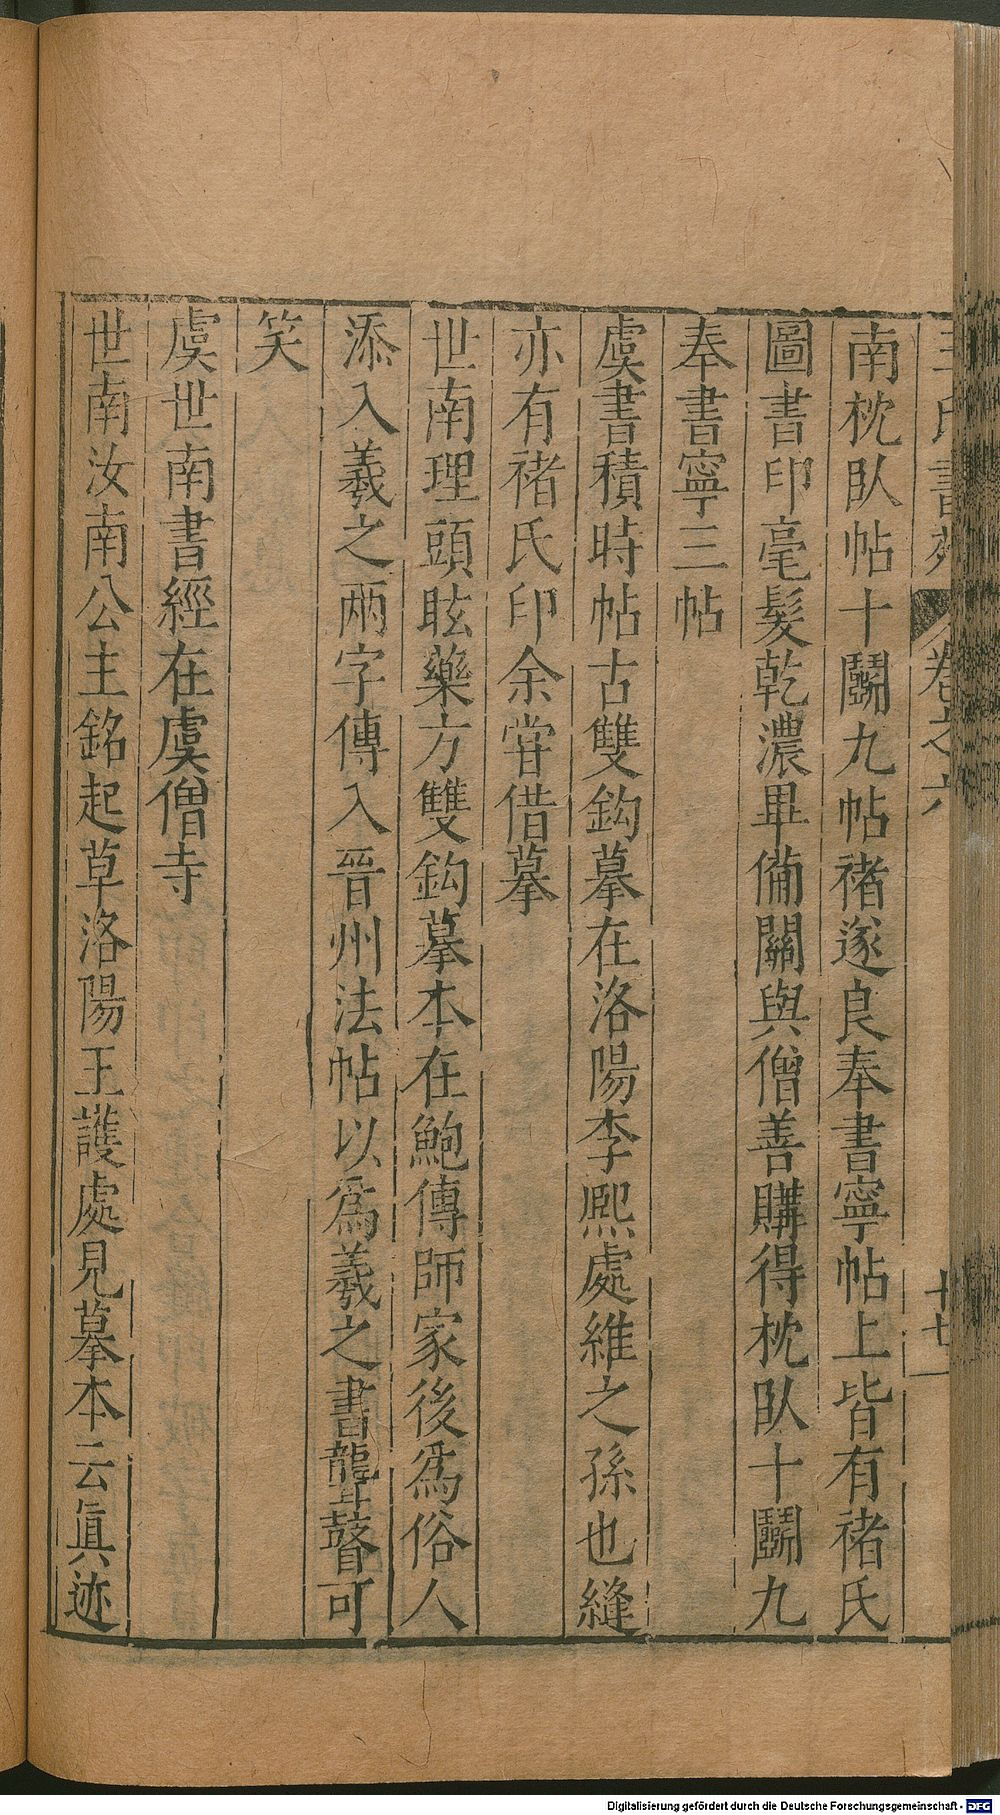 王氏書苑 卷之六 十七
南枕臥帖十鬭九帖褚遂良奉書寧帖上皆有褚氏
圖書印毫髮乾濃畢備關與僧善購得枕臥十鬭九
奉書寧三帖
虞書積時帖古雙鈎摹在洛陽李熙處維之孫也縫
亦有褚氏印余甞借摹
世南理頭眩藥方雙鈎摹本在鮑傳師家後爲俗人
添入羲之兩字傳入晉州法帖以爲羲之書聾瞽可
笑
虞世南書經在虞僧寺
世南汝南公主銘起草洛陽王護處見摹本云眞迹
Digitalisierung gefördert durch die Deutsche Forschungsgemeinschaft - DFG